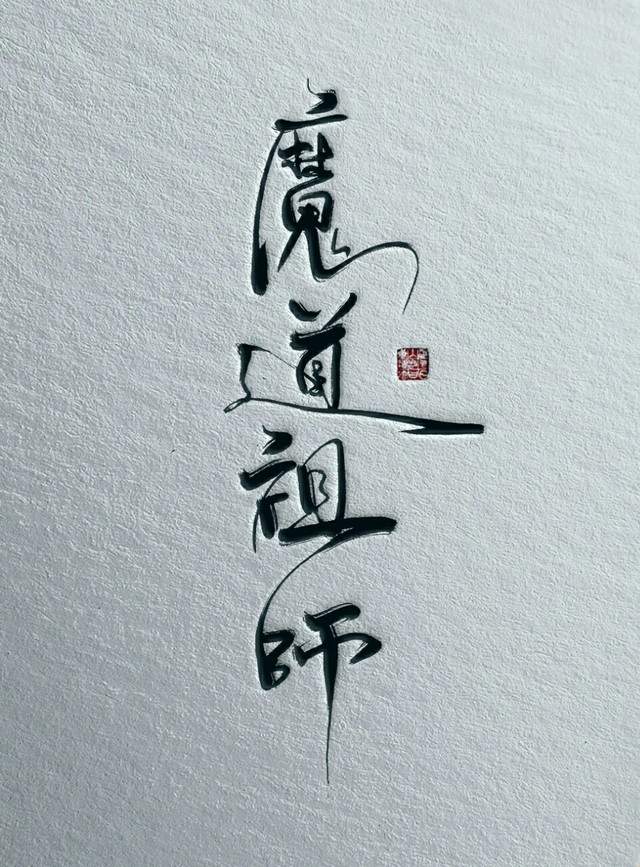 魔道祖師